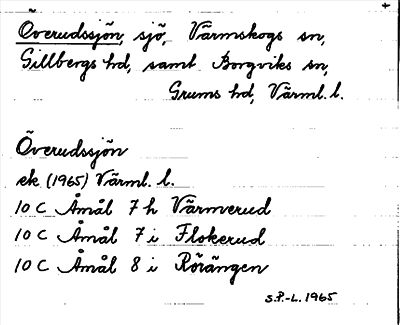 Överudssjön, sjö, Värmskogs sn,
Gillbergs hd, samt Borgviks sn,
Grums hd, Värml. l.
Överudssjön
ek. (1965) Värml. l.
10 C Åmål 7 h Värmverud
10 C Åmål 7 i Flokerud
10 C Åmål 8 i Rörängen
S.P.-L. 1965